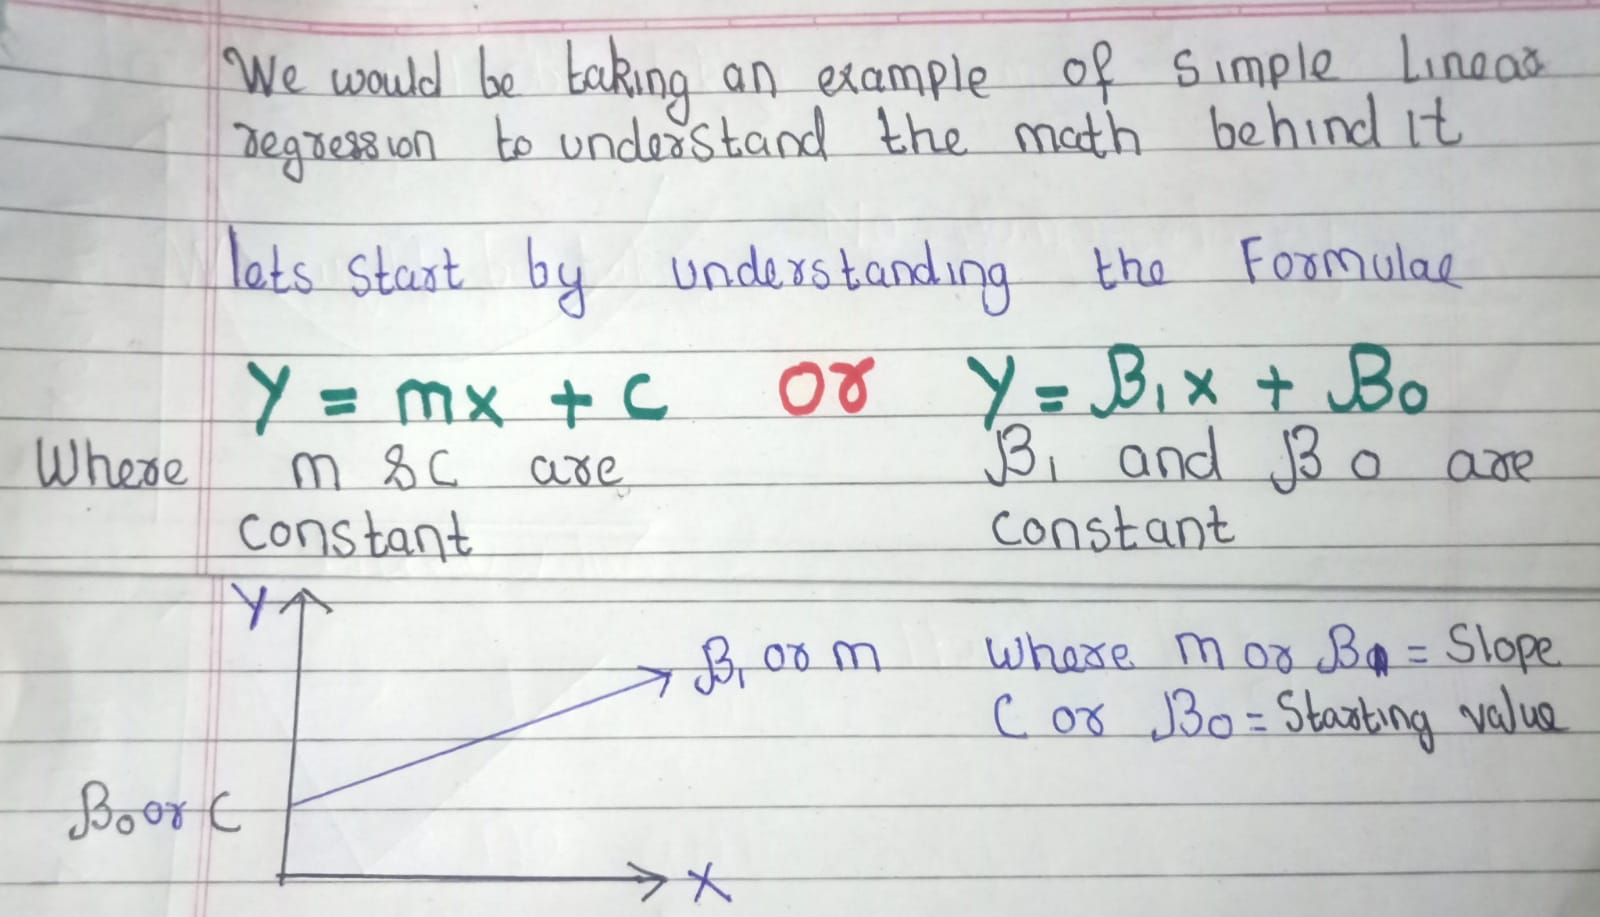 We would be taking an example of simple Linear
regression to understand the math behind it
lets start by understanding the Formulae
Y = mx + c or Y = β₁x + β₀
Where m & c are β₁ and β₀ are
constant constant
Y
β₁ or m where m or β₁ = Slope
C or β₀ = Starting value
β₀ or C
X